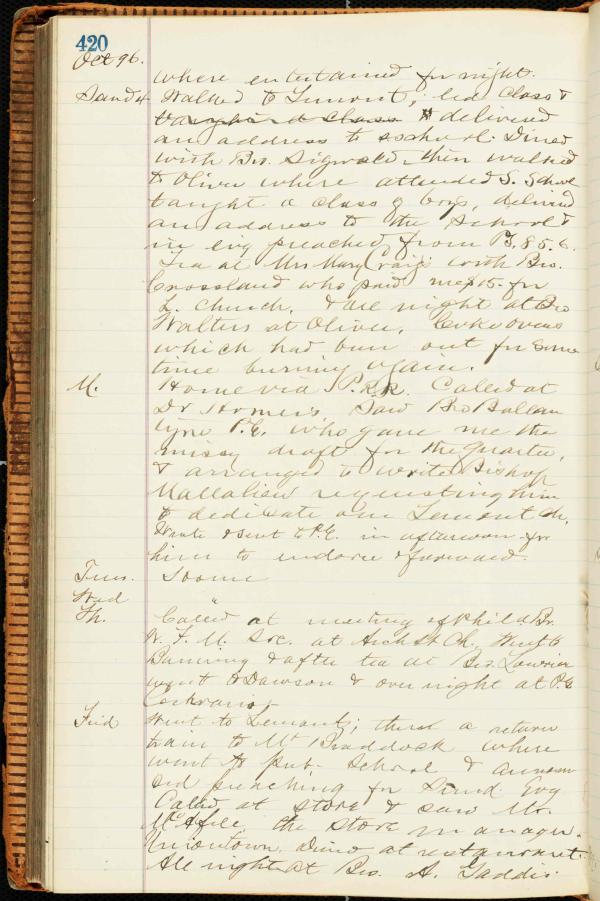 420
Oct 96.
where entertained for night.
Sund 4. Walked to Lemont; led Class &
taught a class & delivered
an address to school. Dined
with Bro. Sigwald then walked
to Oliver where attended S. School
taught a class of boys, delivered
an address to the School &
in evg preached from Ps. 85.6.
Tea at Mrs Mary Craig's with Bro.
Crossland who paid me $15.- for
L. Church. & all night at Bro
Walters at Oliver. Coke ovens
which had been out for some
time burning again.
M. Home via P.R.R. Called at
Dr Horner's. Saw Bro
P.E. who gave me the
missy draft for the quarter,
& arranged to write Bishop
Mallalieu requesting him
to dedicate our Lemont Ch.
Wrote & sent to P.E. in afternoon for
him to endorse & forward.
Tues. Home
Wed "
Th. Called at meeting of Phila Br.
W. F. M. Soc. at Arch St Ch. Went to
Banning & after tea at Bro. Lowrie's
went to Dawson & over night at P.G.
Cochran's,
Frid Went to Lemont; thence a return
train to Mt Braddock where
went to pub. School & announ
ced preaching for Sund. Evg
Called at store & saw Mr.
McAfee the store manager.
Uniontown. Dined at restaurant.
All night at Bro. A. Gaddis.